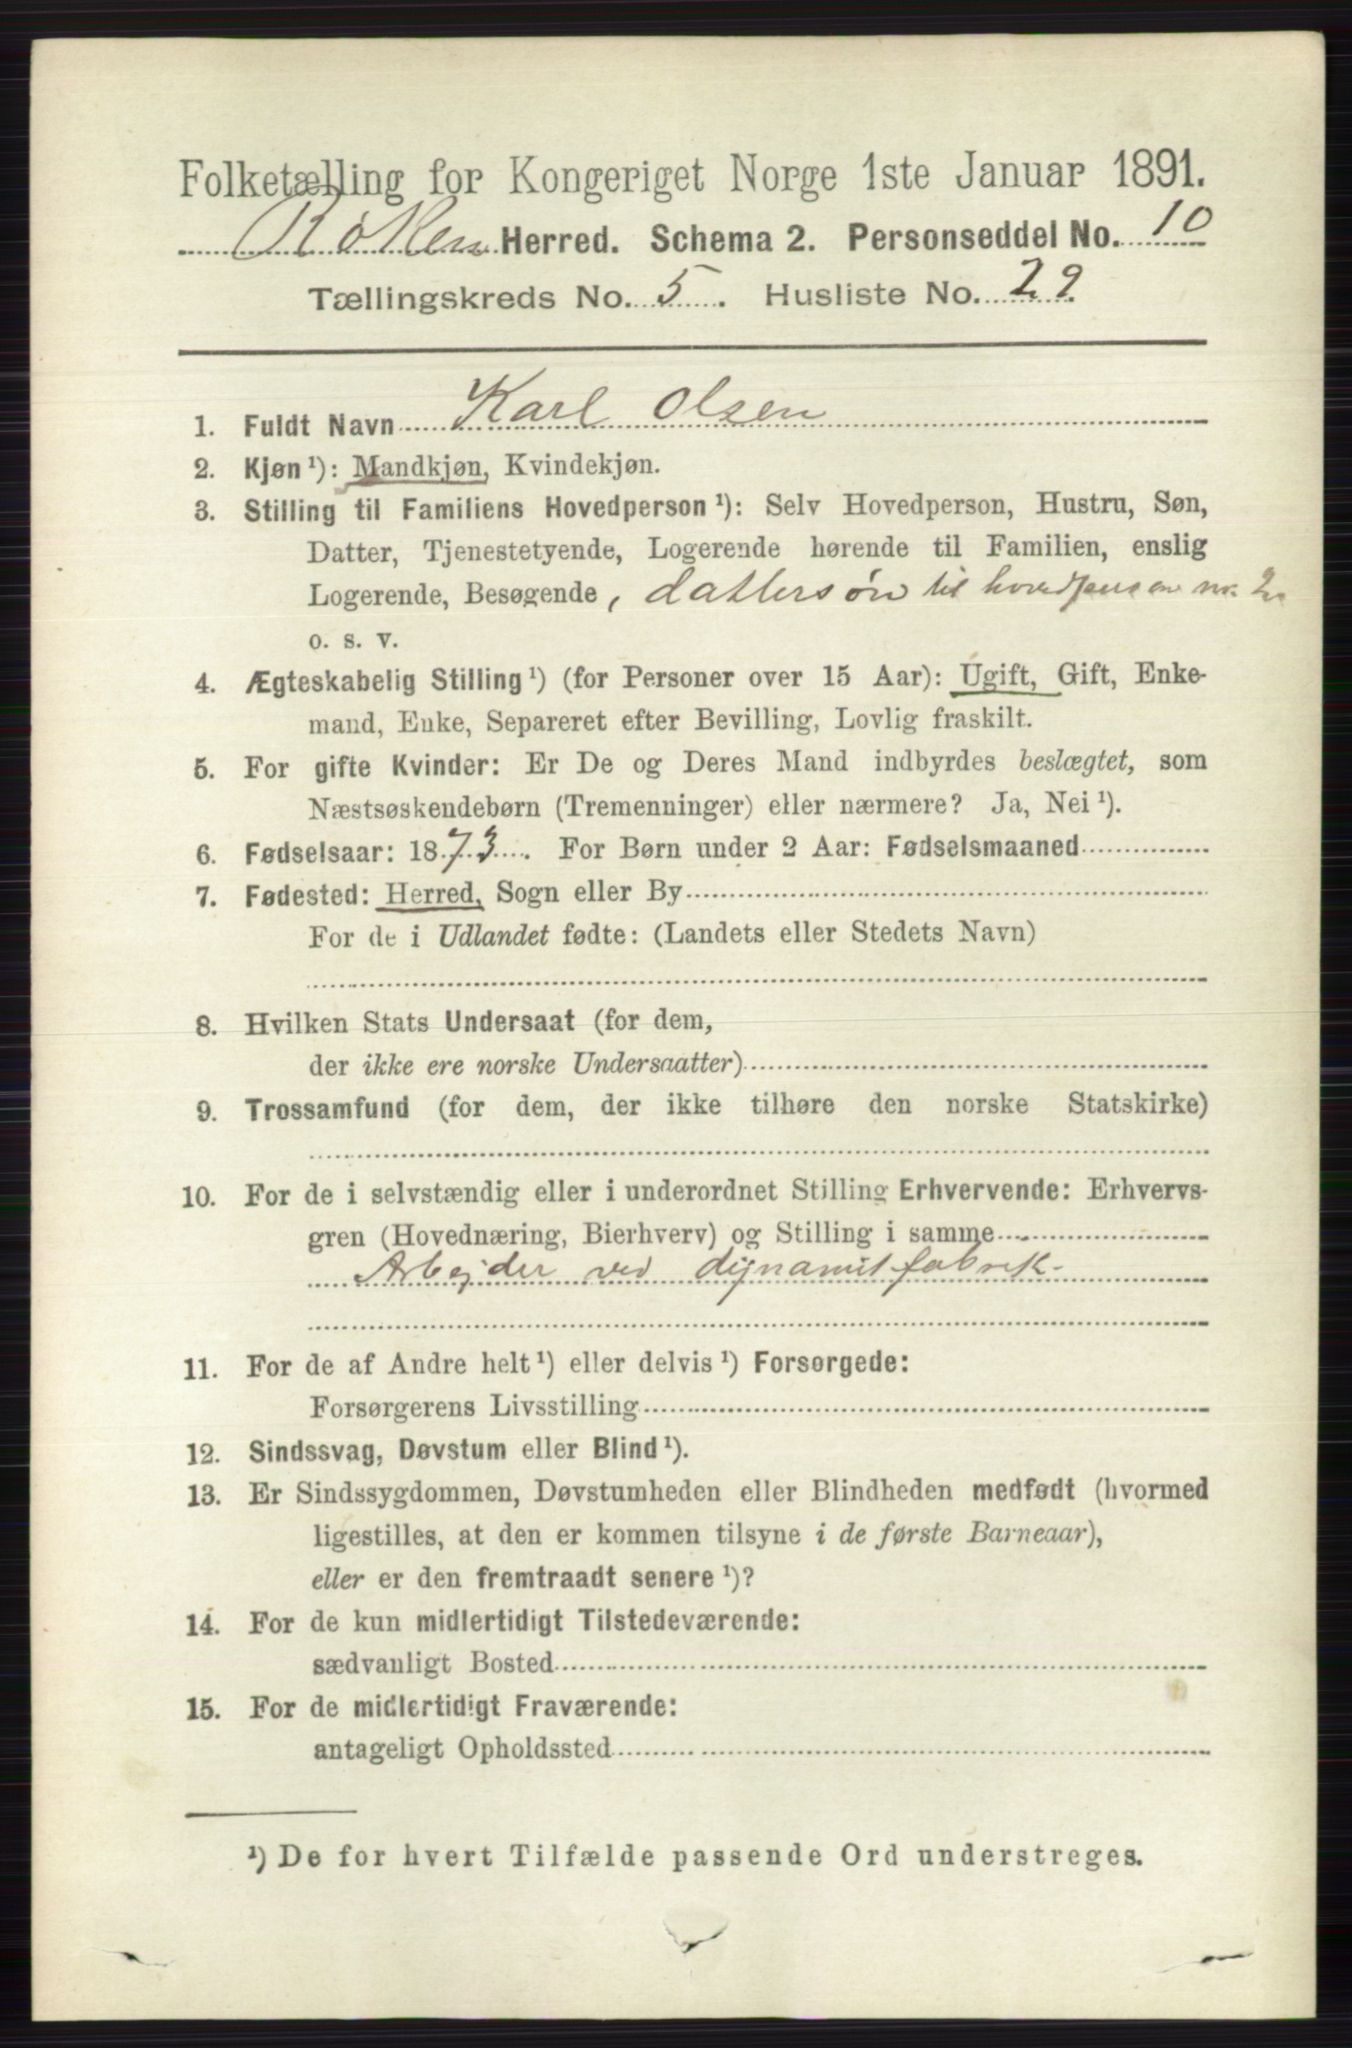 Folketælling for Kongeriget Norge 1ste Januar 1891.
Røken Herred. Schema 2. Personseddel No. 10
Tællingskreds No. 5. Husliste No. 29
1. Fuldt Navn Karl Olsen
2. Kjøn ¹): Mandkjøn, Kvindekjøn.
3. Stilling til Familiens Hovedperson ¹): Selv Hovedperson, Hustru, Søn,
Datter, Tjenestetyende, Logerende hørende til Familien, enslig
Logerende, Besøgende, dattersøn til hovedperson no. 2
o. s. v.
4. Ægteskabelig Stilling ¹) (for Personer over 15 Aar): Ugift, Gift, Enke-
mand, Enke, Separeret efter Bevilling, Lovlig fraskilt.
5. For gifte Kvinder: Er De og Deres Mand indbyrdes beslægtet, som
Næstsøskendebørn (Tremenninger) eller nærmere? Ja, Nei ¹).
6. Fødselsaar: 1873. For Børn under 2 Aar: Fødselsmaaned
7. Fødested: Herred, Sogn eller By
For de i Udlandet fødte: (Landets eller Stedets Navn)
8. Hvilken Stats Undersaat (for dem,
der ikke ere norske Undersaatter)
9. Trossamfund (for dem, der ikke tilhøre den norske Statskirke)
10. For de i selvstændig eller i underordnet Stilling Erhvervende: Erhvervs-
gren (Hovednæring, Bierhverv) og Stilling i samme
Arbejder ved dynamitfabrik
11. For de af Andre helt ¹) eller delvis ¹) Forsørgede:
Forsørgerens Livsstilling
12. Sindssvag, Døvstum eller Blind ¹).
13. Er Sindssygdommen, Døvstumheden eller Blindheden medfødt (hvormed
ligestilles, at den er kommen tilsyne i de første Barneaar),
eller er den fremtraadt senere ¹)?
14. For de kun midlertidigt Tilstedeværende:
sædvanligt Bosted
15. For de midlertidigt Fraværende:
antageligt Opholdssted
¹) De for hvert Tilfælde passende Ord understreges.